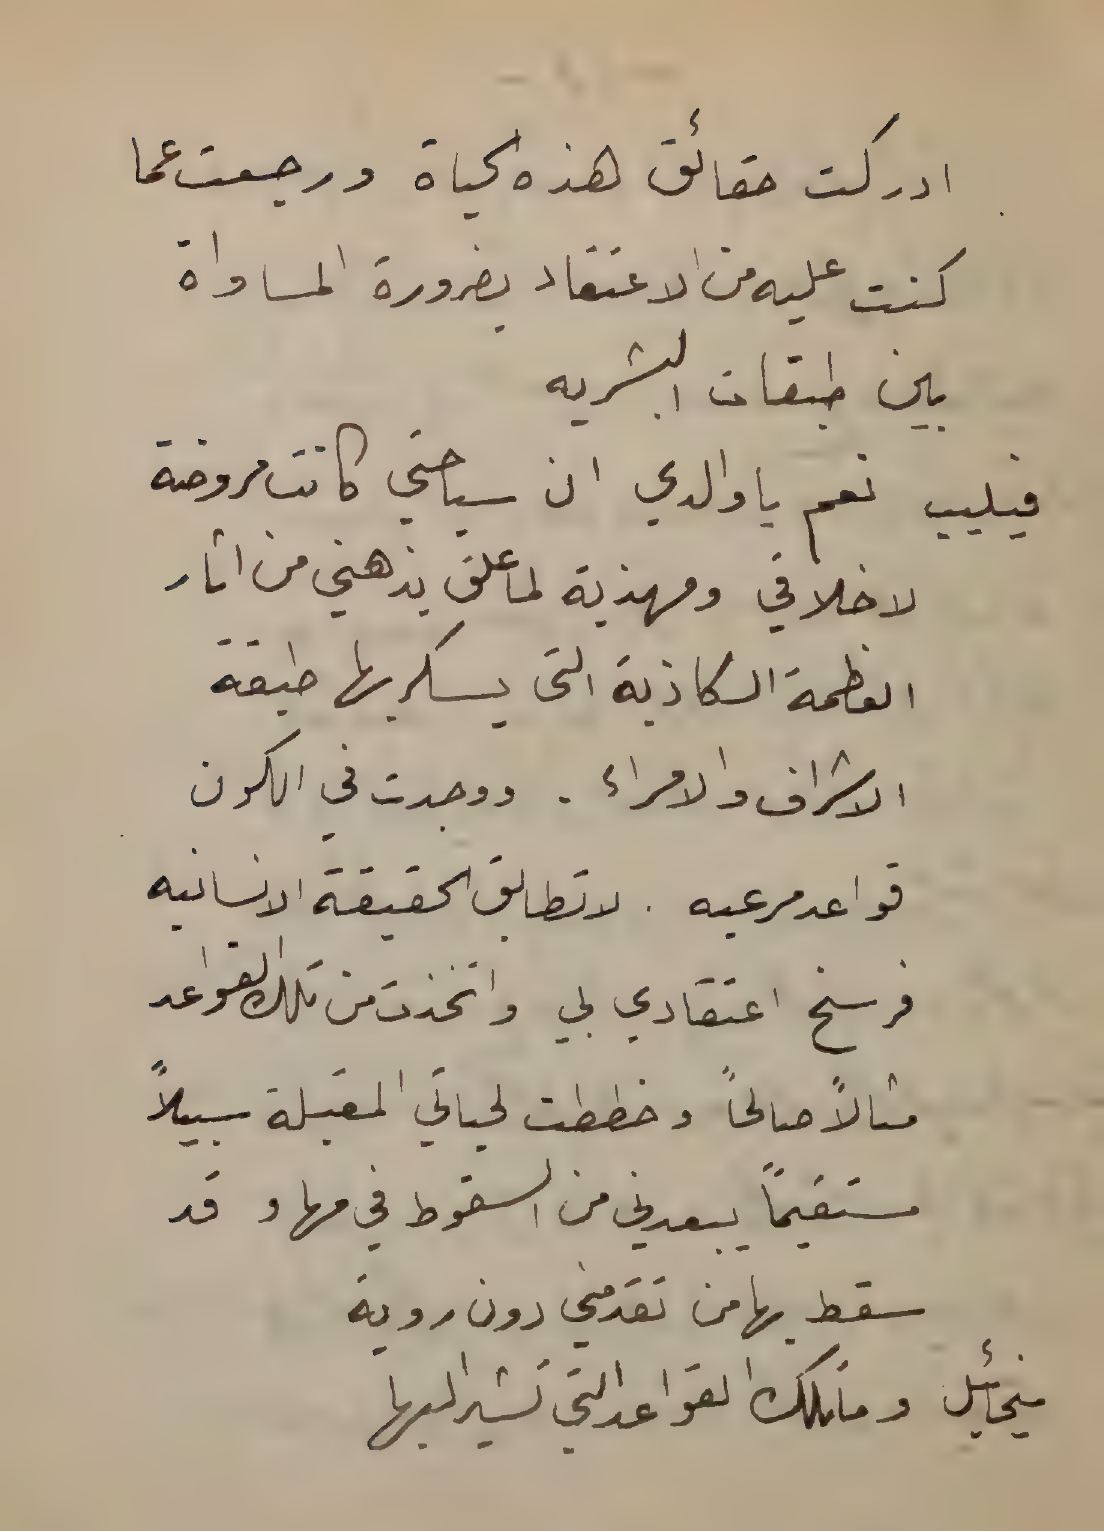 ادركت حقائق هذه الحياة ورجعت عما
كنت عليه من الاعتقاد بضرورة المساواة
بين طبقات البشريه
فيليب نعم يا والدي ان سياحتي كانت مروضة
لاخلاقي ومهذبة لما علق بذهني من اثار
العظمة الكاذبة التي يسكر بها طبقة
الاشراف والامراء . ووجدت في الكون
قواعد مرعيه . لا تطابق الحقيقة الانسانيه
فرسخ اعتقادي بي واتخذت من تلك القواعد
مثالاً صالحاً وخططت لحياتي المقبلة سبيلاً
مستقيماً يبعدني من السقوط في مهاو قد
سقط بها من تقدمني دون روية
ميخائيل وما تلك القواعد التي تشير اليها